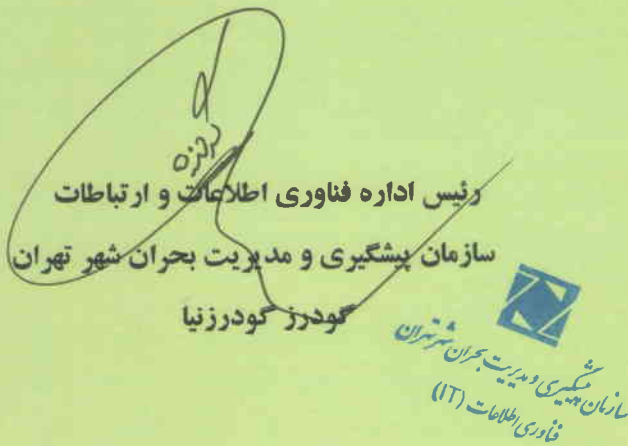 رئیس اداره فناوری اطلاعات و ارتباطات
سازمان پیشگیری و مدیریت بحران شهر تهران
گودرز گودرزنیا
سازمان پیشگیری و مدیریت بحران شهر تهران
فناوری اطلاعات (IT)